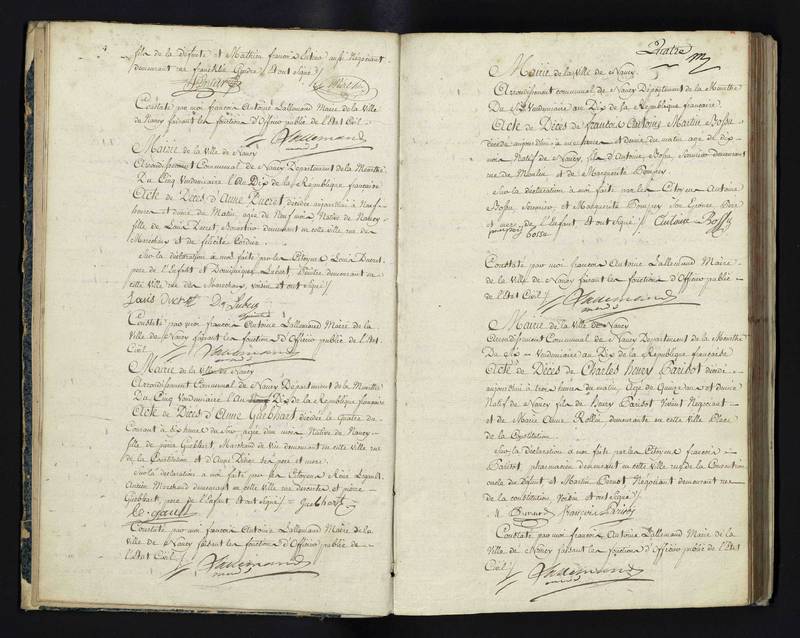 fils de la défunte et Mathieu françois aussi Négociant
demeurant rue franklin Gendre / Et ont signé /
Constaté par moi françois Antoine Lallemand Maire de la Ville
de Nancy faisant les fonctions d'Officier public de l'Etat Civil.
Lallemand
Mairie de la Ville de Nancy
Arrondissement Communal de Nancy Département de la Meurthe
Du Cinq Vendemiaire l'An Dix de la Republique française
Acte de Décès d'Anne Ducret décédée aujourd'hui à Neuf
heures et demie du Matin, agée de Neuf mois Native de Nancy
fille de Louis Ducret, demeurant en cette ville rue du
Marechaux et de félicité
Sur la déclaration à moi faite par les Citoyens Louis Ducret
pere de l'Enfant et Dominique Lubert, demeurant en
cette Ville rue des Marechaux, voisin et ont signé /
Louis Ducret D. Lubert
Constaté par moi françois Antoine Lallemand Maire de la
Ville de Nancy faisant les fonctions d'Officier public de l'Etat
Civil /
Lallemand
Mairie de la Ville de Nancy
Arrondissement Communal de Nancy Département de la Meurthe
Du Cinq Vendemiaire l'An Dix de la Republique française
Acte de Décès d'Anne Guebhart décédée le Quatre du
Courant à six heures du Soir agée d'un mois Native de Nancy
fille de pierre Guebhart, Marchand de Vin demeurant en cette ville rue
de la Constitution et d'Anne ses pere et mere.
Sur la déclaration à moi faite par les Citoyens
Ancien Marchand demeurant en cette ville rue et pierre
Guebhart, pere de l'Enfant Et ont signé / Guebhart
Constaté par moi françois Antoine Lallemand Maire de la
Ville de Nancy faisant les fonctions d'Officier public de
l'Etat Civil /
Lallemand
Quatre
Mairie de la Ville de Nancy
Arrondissement communal de Nancy Département de la Meurthe
Du Six Vendemiaire an Dix de la Republique française.
Acte de Décès de françois Antoine Martin Bossa
décédé aujourd'hui à une heure et demie du matin agé de dix
mois Natif de Nancy, fils d'Antoine Bossa, demeurant
rue du Moulin et de Marguerite
Sur la déclaration à moi faite par les Citoyens Antoine
Bossa, et Marguerite son Epouse Pere
et mere de l'Enfant Et ont signé / Antoine Bossa
bossa
Constaté par moi françois Antoine Lallemand Maire
de la Ville de Nancy faisant les fonctions d'Officier public
de l'Etat Civil /
Lallemand
Mairie de la Ville de Nancy
Arrondissement Communal de Nancy Département de la Meurthe
Du Six Vendemiaire an Dix de la Republique française
Acte de Décès de Charles henry Parisot décédé
aujourd'hui à trois heures du matin, Agé de Quinze ans et demie
Natif de Nancy fils de henry Parisot Vivant Négociant
et de Marie Anne Rollin demeurante en cette Ville Place
de la Constitution.
Sur la déclaration à moi faite par les Citoyens françois
Parisot, pharmacien demeurant en cette ville rue de la Convention
oncle du défunt et Martin Négociant demeurant rue
de la constitution Voisin et ont signé /
françois Parisot
Constaté par moi françois Antoine Lallemand Maire de la
Ville de Nancy faisant les fonctions d'Officier public de l'Etat
Civil /
Lallemand